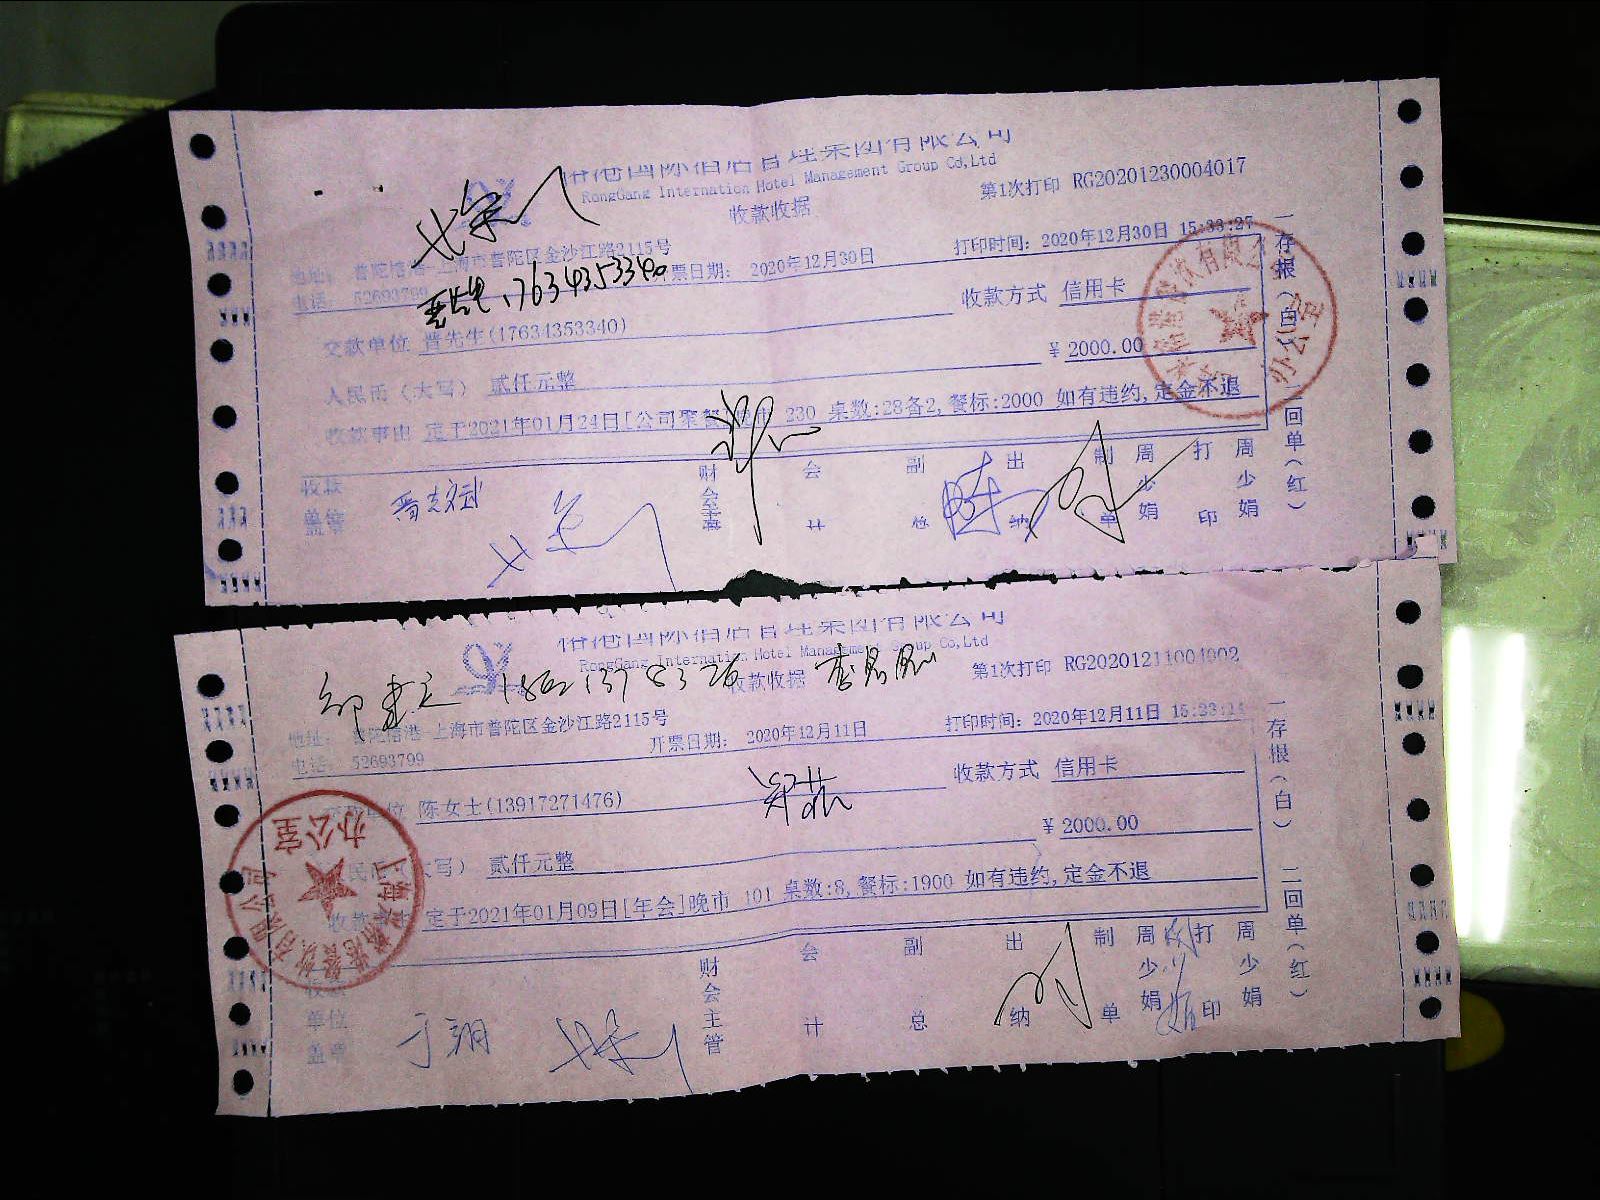 RongGang Internation Hotel Management Group Co,Ltd
收款收据
第1次打印 RG20201230004017
地址: 普陀悟港-上海市普陀区金沙江路2115号
电话: 52693799
票日期: 2020年12月30日
打印时间: 2020年12月30日 15:33:27
17634353340
收款方式 信用卡
交款单位 晋先生(17634353340)
¥ 2000.00
人民币（大写） 贰仟元整
收款事由 定于2021年01月24日[公司聚餐]晚市 230 桌数:28备2,餐标:2000 如有违约,定金不退
收款单位盖章
财会主管
会计
副总
出纳
制单
周少娟
打印
周少娟
一存根(白)
二回单(红)
办公室
RongGang Internation Hotel Management Group Co,Ltd
收款收据
第1次打印 RG20201211004002
地址: 普陀悟港-上海市普陀区金沙江路2115号
电话: 52693799
开票日期: 2020年12月11日
打印时间: 2020年12月11日 15:23:14
收款方式 信用卡
交款单位 陈女士(13917271476)
¥ 2000.00
人民币（大写） 贰仟元整
收款事由 定于2021年01月09日[年会]晚市 101 桌数:8,餐标:1900 如有违约,定金不退
收款单位盖章
于翔
财会主管
会计
副总
出纳
制单
周少娟
打印
周少娟
一存根(白)
二回单(红)
办公室